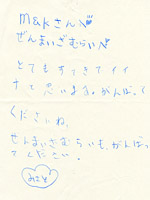 M&Kさんへ
ぜんまいざむらい
とてもすてきでイイ
なと思います。がんばって
くださいね。
ぜんまいざむらいも、がんばっ
てください。
みさと